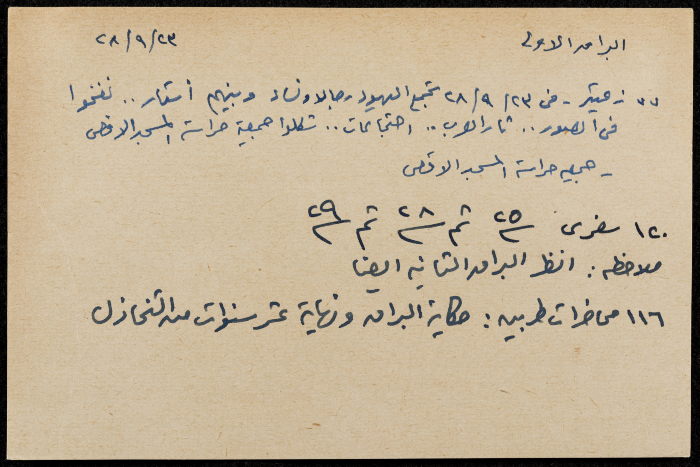 البراق الاولى ٢٨/٩/٢٣
٥٥ زعيتر - في ٢٨/٩/٢٣ تجمع اليهود رجالا ونساء وبينهم .. نفخوا
في الصور .. ثار العرب .. احتجاجات .. شكلوا جمعية حراسة المسجد الاقصى
- جمعيه حراسة المسجد الاقصى
١٢٠ سفرى ٢٥ ثم ٢٨ ثم ٢٩
ملاحظه : انظر البراق الثانيه ايضا
١١٦ محاضرات طربيه : حكاية البراق ونهاية عشر سنوات من التخاذل